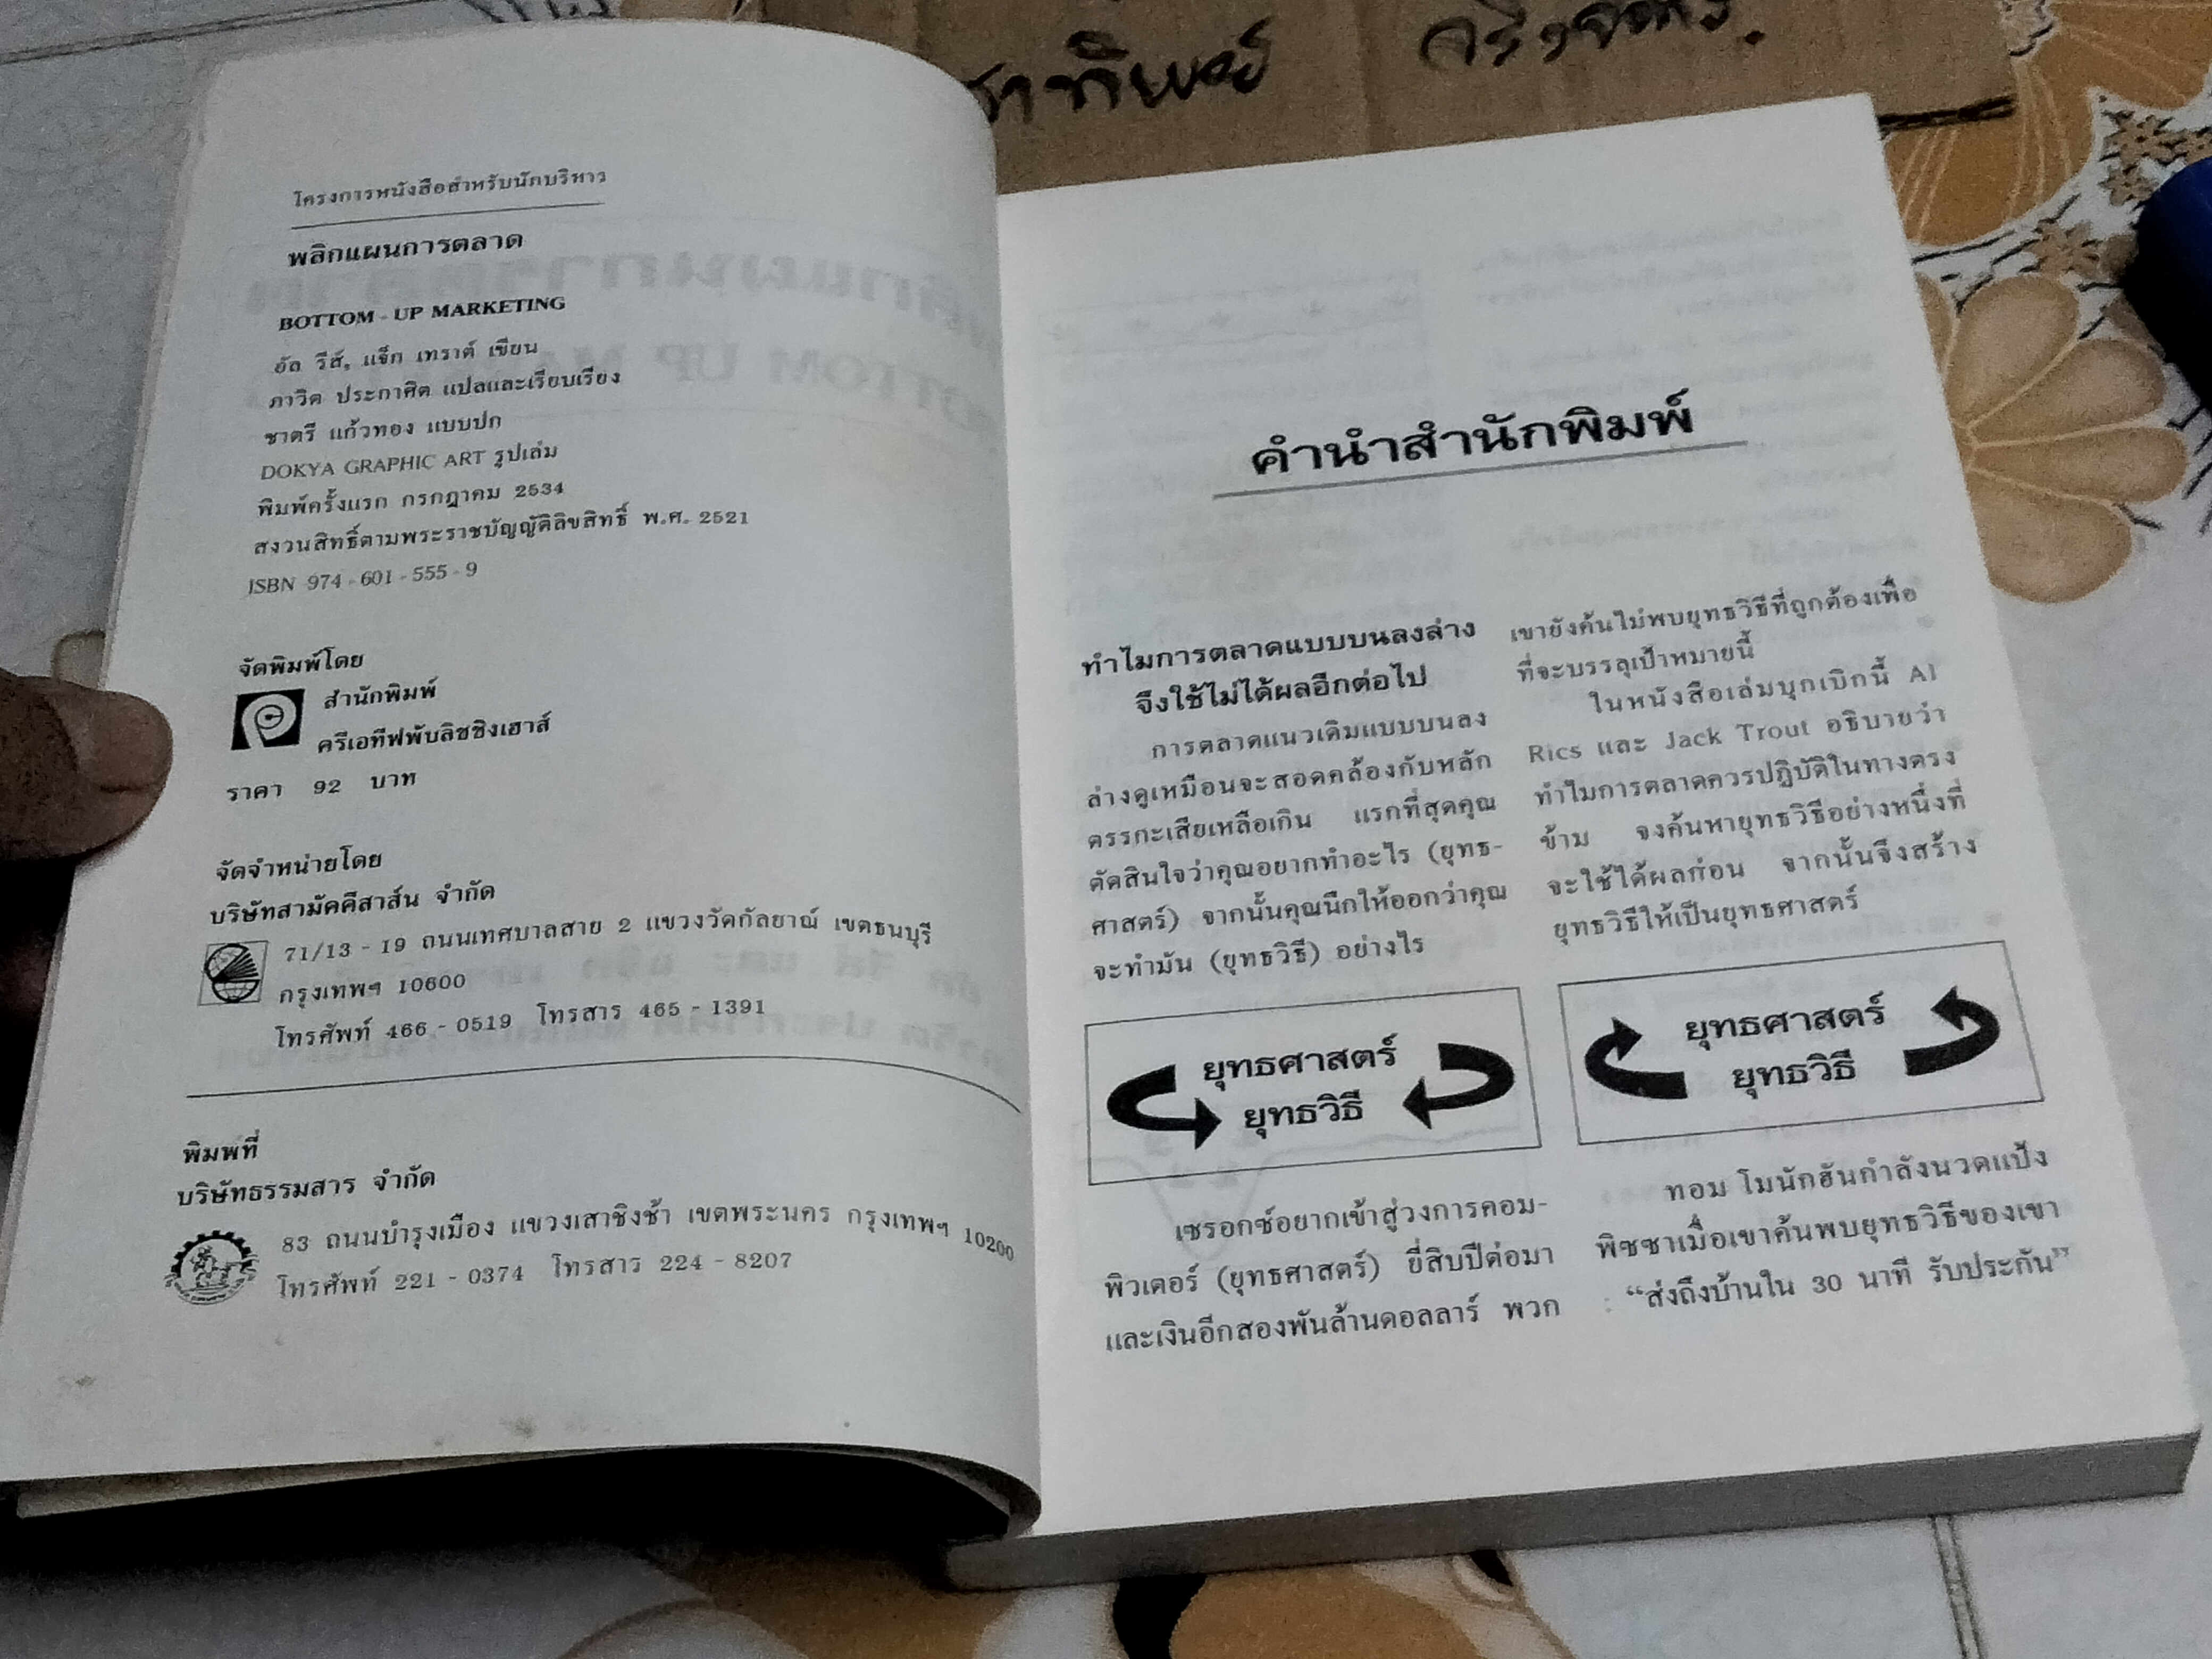 โครงการหนังสือสำหรับนักบริหาร
พลิกแผนการตลาด
BOTTOM - UP MARKETING
อัล รีส์, แจ็ก เทราต์ เขียน
ภาวิต ประกาศิต แปลและเรียบเรียง
ชาตรี แก้วทอง แบบปก
DOKYA GRAPHIC ART รูปเล่ม
พิมพ์ครั้งแรก กรกฎาคม 2534
สงวนสิทธิ์ตามพระราชบัญญัติลิขสิทธิ์ พ.ศ. 2521
ISBN 974 - 601 - 555 - 9
จัดพิมพ์โดย
สำนักพิมพ์
ครีเอทีฟพับลิชชิงเฮาส์
ราคา 92 บาท
จัดจำหน่ายโดย
บริษัทสามัคคีสาส์น จำกัด
71/13 - 19 ถนนเทศบาลสาย 2 แขวงวัดกัลยาณ์ เขตธนบุรี
กรุงเทพฯ 10600
โทรศัพท์ 466 - 0519 โทรสาร 465 - 1391
พิมพที่
บริษัทธรรมสาร จำกัด
83 ถนนบำรุงเมือง แขวงเสาชิงช้า เขตพระนคร กรุงเทพฯ 10200
โทรศัพท์ 221 - 0374 โทรสาร 224 - 8207
คำนำสำนักพิมพ์
ทำไมการตลาดแบบบนลงล่าง
จึงใช้ไม่ได้ผลอีกต่อไป
การตลาดแนวเดิมแบบบนลง
ล่างดูเหมือนจะสอดคล้องกับหลัก
ตรรกะเสียเหลือเกิน แรกที่สุดคุณ
ตัดสินใจว่าคุณอยากทำอะไร (ยุทธ-
ศาสตร์) จากนั้นคุณนึกให้ออกว่าคุณ
จะทำมัน (ยุทธวิธี) อย่างไร
ยุทธศาสตร์
ยุทธวิธี
เซรอกซ์อยากเข้าสู่วงการคอม-
พิวเตอร์ (ยุทธศาสตร์) ยี่สิบปีต่อมา
และเงินอีกสองพันล้านดอลลาร์ พวก
เขายังค้นไม่พบยุทธวิธีที่ถูกต้องเพื่อ
ที่จะบรรลุเป้าหมายนี้
ในหนังสือเล่มบุกเบิกนี้ Al
Rics และ Jack Trout อธิบายว่า
ทำไมการตลาดควรปฏิบัติในทางตรง
ข้าม จงค้นหายุทธวิธีอย่างหนึ่งที่
จะใช้ได้ผลก่อน จากนั้นจึงสร้าง
ยุทธวิธีให้เป็นยุทธศาสตร์
ยุทธศาสตร์
ยุทธวิธี
ทอม โมนักฮันกำลังนวดแป้ง
พิซซาเมื่อเขาค้นพบยุทธวิธีของเขา
: “ส่งถึงบ้านใน 30 นาที รับประกัน”